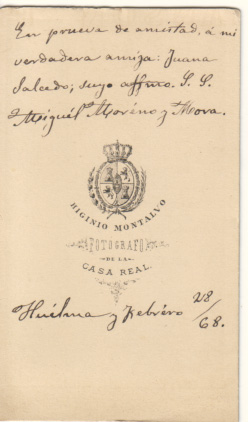 En prueva de amistad, á mi
verdadera amiga: Juana
Salcedo; suyo affmo. S. S.
Miguél Moréno y Mora.
HIGINIO MONTALVO
FOTOGRAFO
DE LA
CASA REAL.
Huélma y Febréro 28/68.